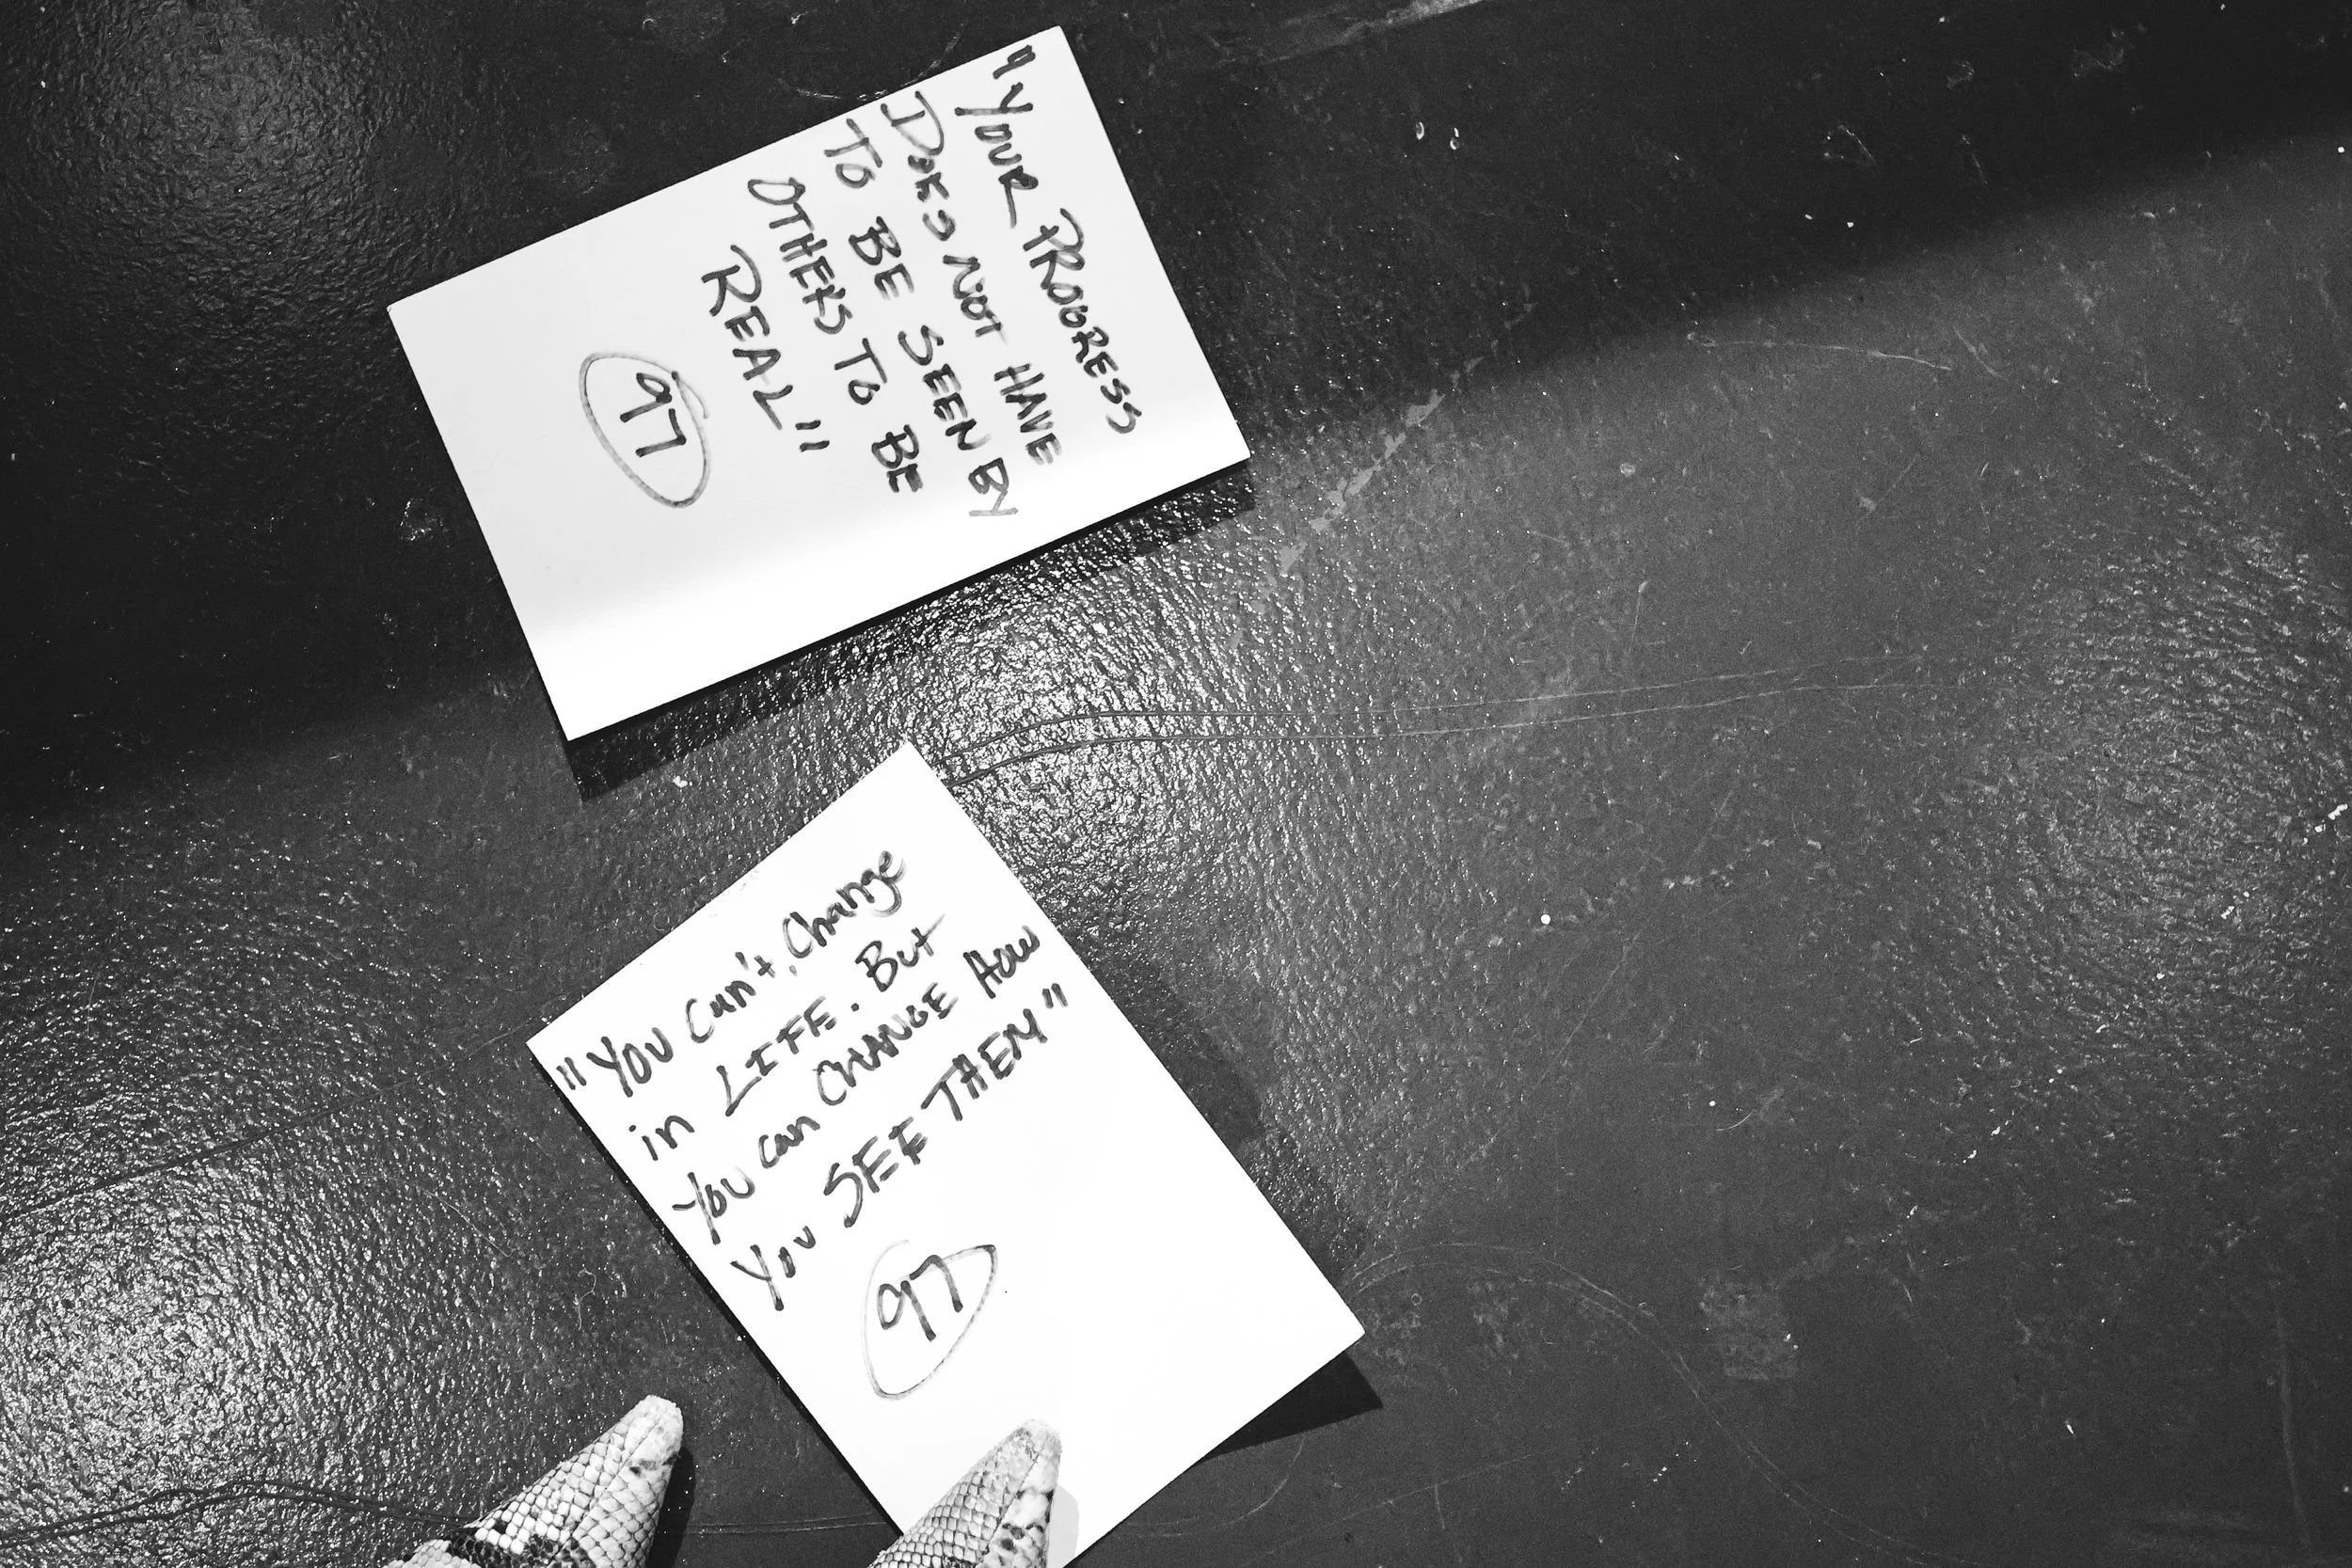 "YOUR PROGRESS
DOES NOT HAVE
TO BE SEEN BY
OTHERS TO BE
REAL"
97
"YOU Can't Change
in LIFE. But
You can CHANGE HOW
YOU SEE THEM"
97